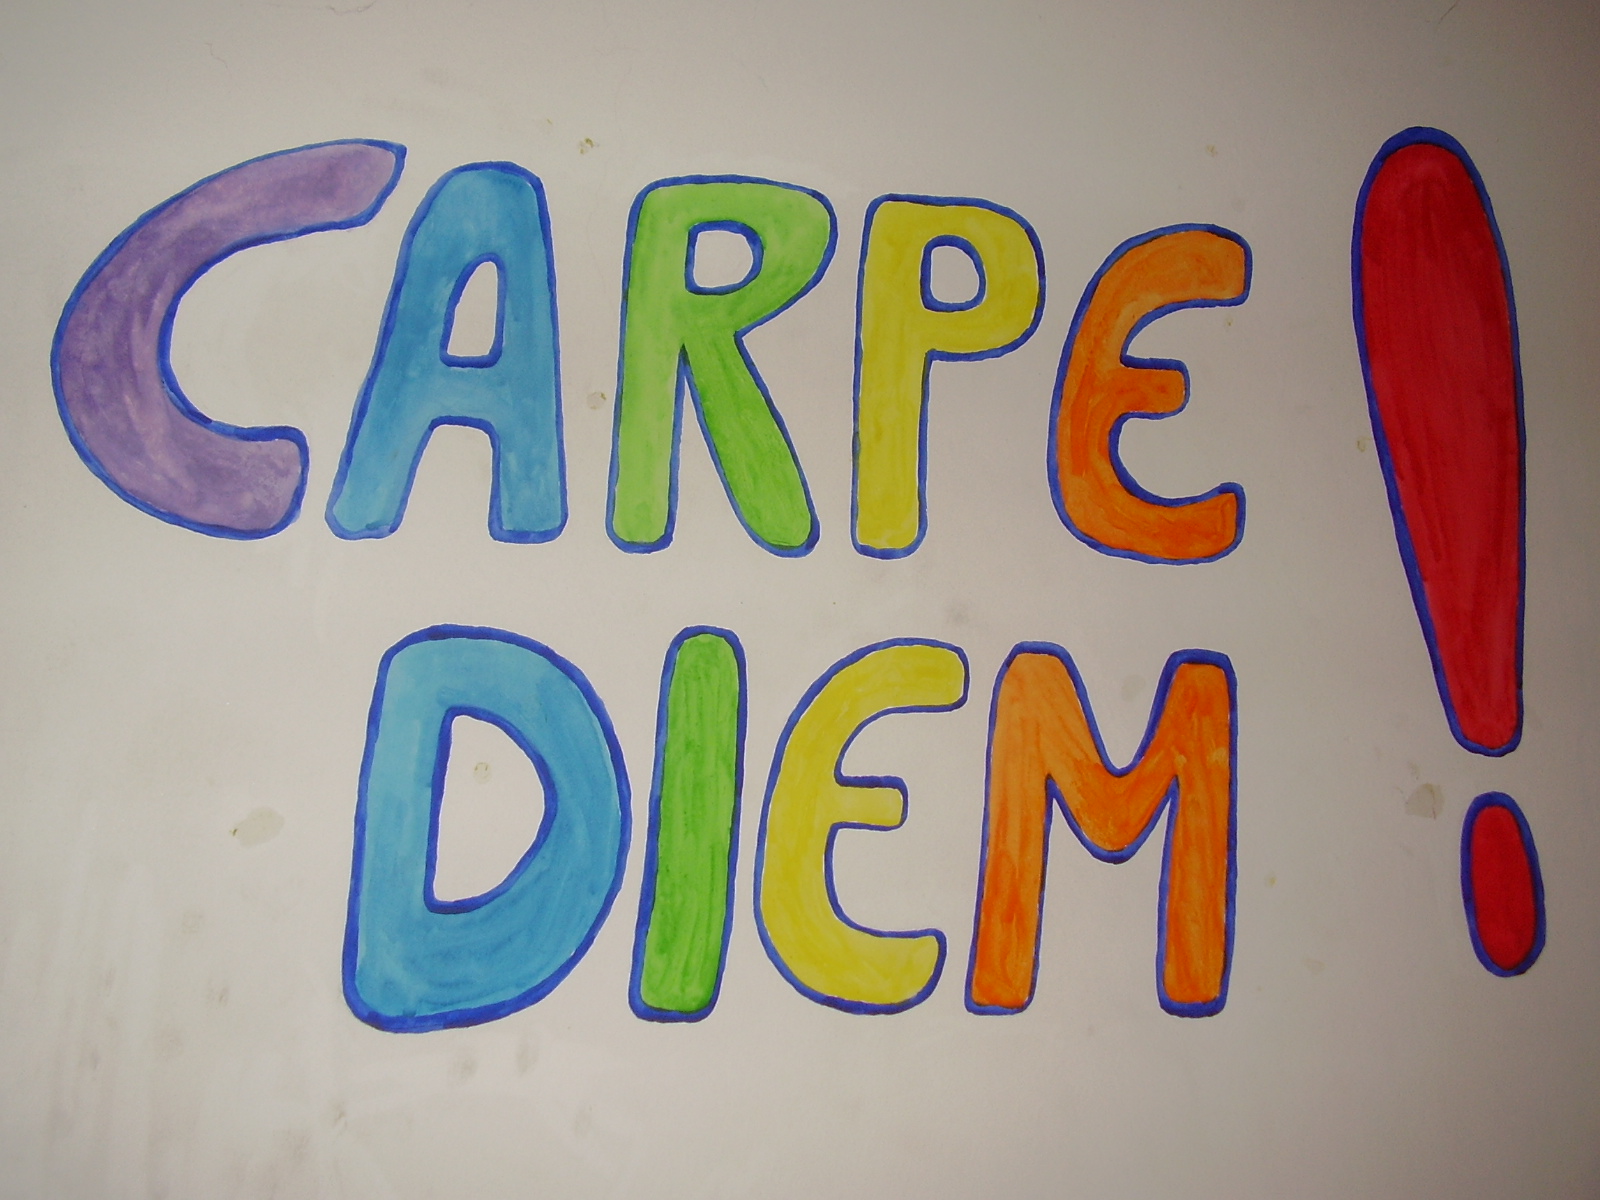 CARPE
DIEM!